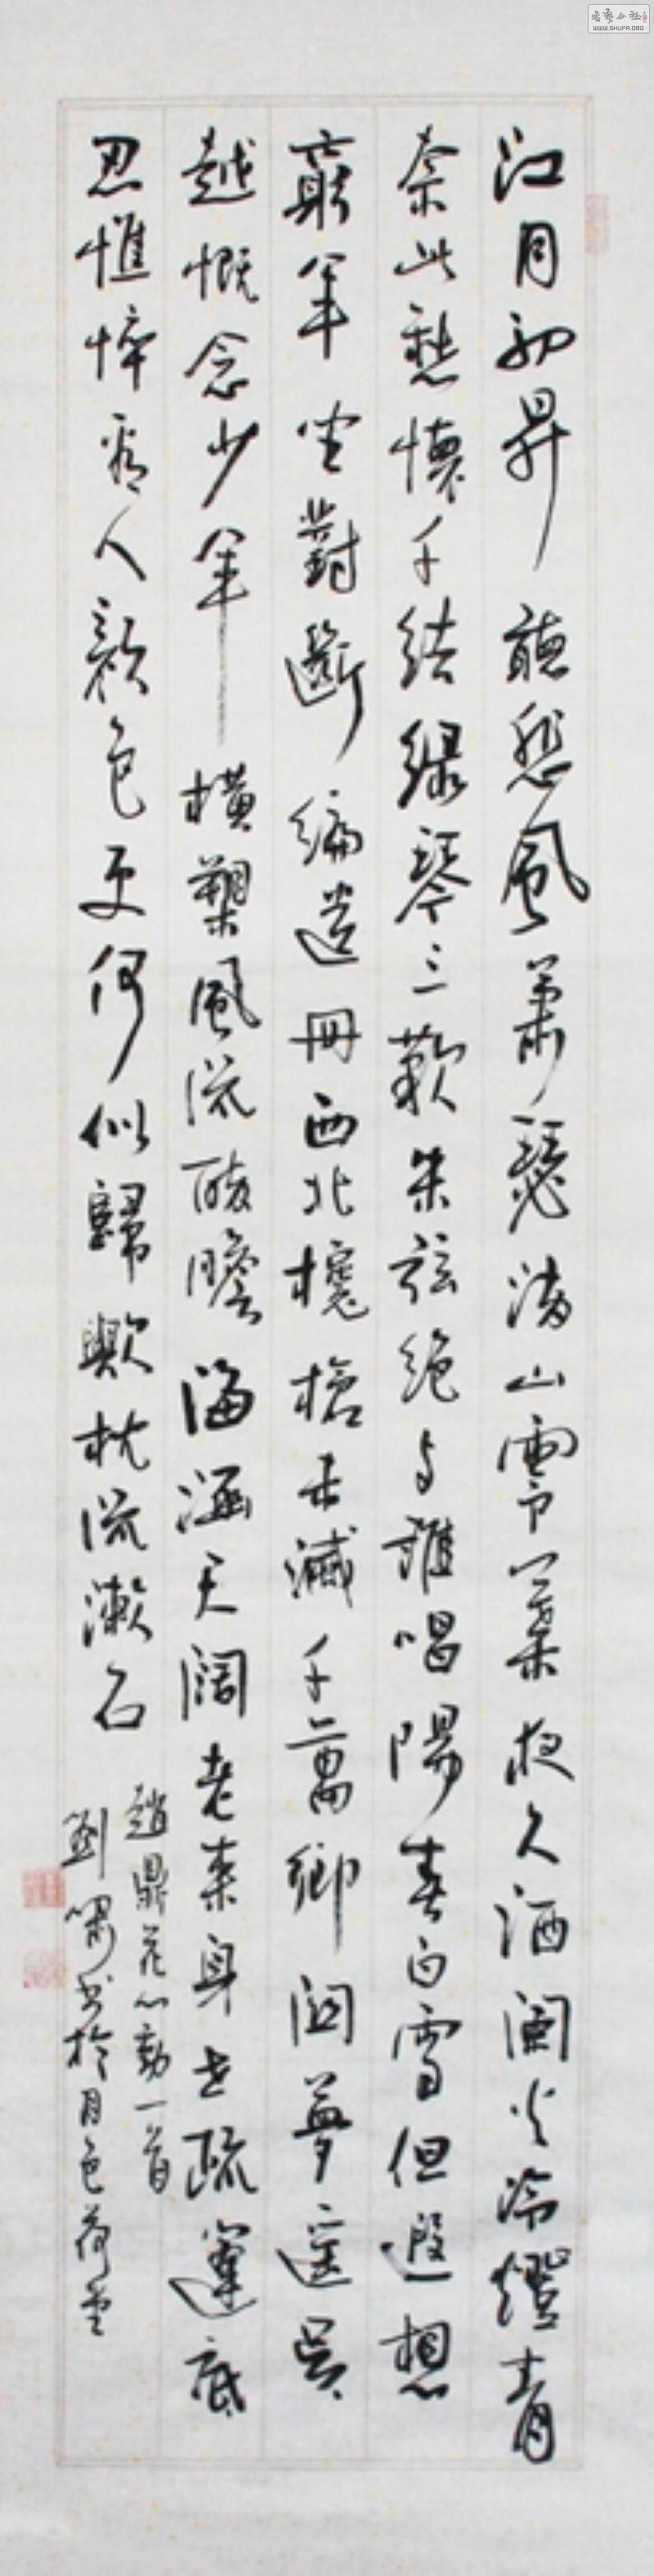 江月初昇聽悲風蕭瑟滿山零葉夜久酒闌火冷燈青
奈此愁懷千結綠琴三歎朱弦絕与誰唱陽春白雪但遐想
窮年坐對斷編遺冊西北欃槍未滅千萬鄉關夢遙吳
越慨念少年橫槊風流醉膽海涵天闊老來身世疏篷底
忍憔悴看人顏色更何似歸歟枕流漱石
趙鼎花心動一首
劉書於月色荷堂
WWW.SHUFA.ORG